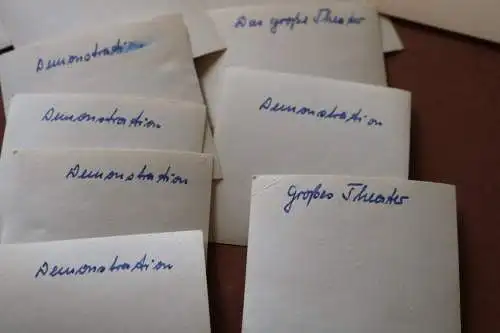 Demonstration
Das große Theater
Demonstration
Demonstration
Demonstration
Großes Theater
Demonstration